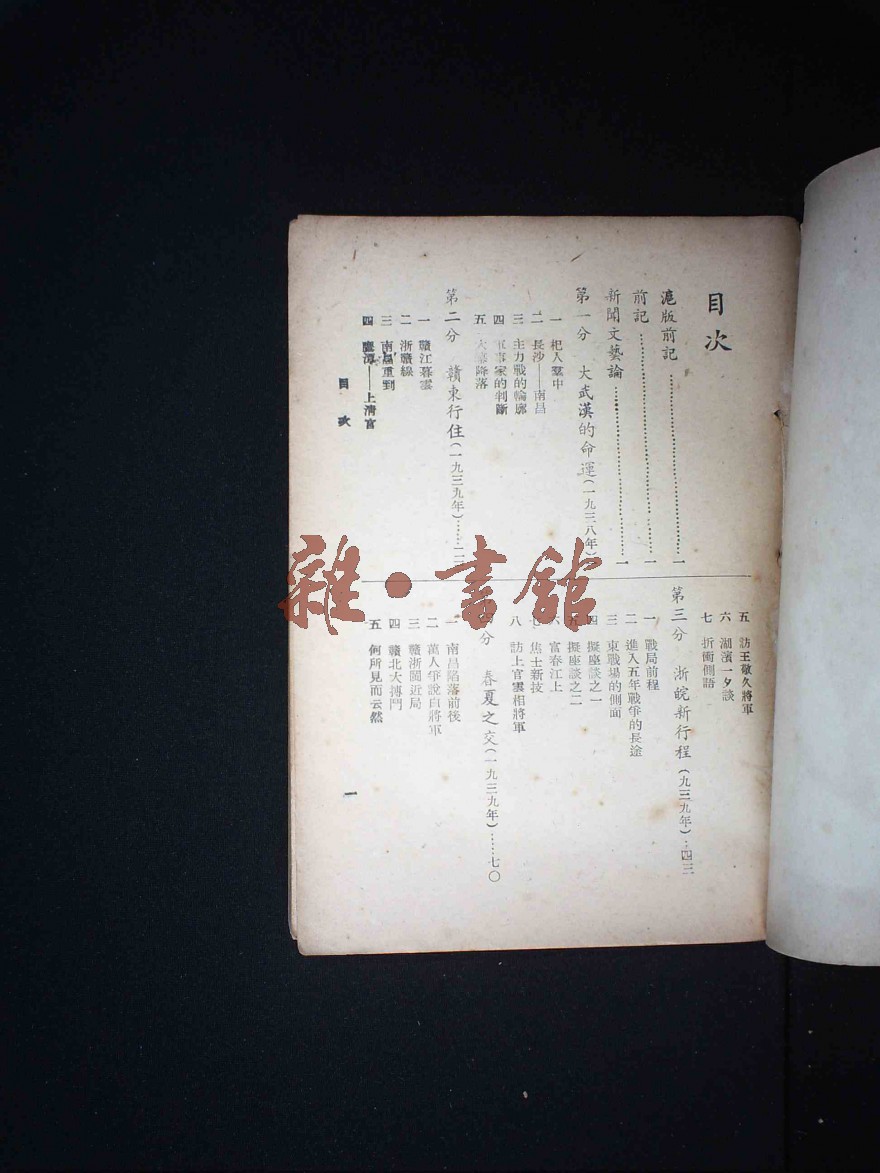 目次
滬版前記………一
前記………一
新聞文藝論………一
第一分　大武漢的命運(一九三八年)
一　杞人羣中
二　長沙——南昌
三　主力戰的輪廓
四　軍事家的判斷
五　大幕降落
第二分　贛東行住(一九三九年)……二
一　贛江暮雲
二　浙贛線
三　南昌重到
四　鷹潭——上清宮
五　訪王敬久將軍
六　湖濱一夕談
七　折衝側語
第三分　浙皖新行程(九三九年)…四三
一　戰局前程
二　進入五年戰爭的長途
三　東戰場的側面
四　擬座談之一
五　擬座談之二
六　富春江上
七　焦土新技
八　訪上官雲相將軍
分　春夏之交(一九三九年)……七〇
一　南昌陷落前後
二　萬人爭說白將軍
三　贛浙閩近局
四　贛北大搏鬥
五　何所見而云然
目次
一
雜·書館